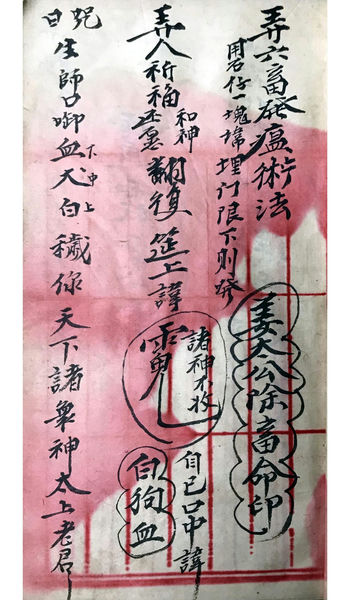 弄六畜發瘟術法
用石仔一塊諱埋门限下則發
姜太公除畜命印
弄人祈福还愿和神翻復筵上諱
諸神不收
自己口中諱
白狗血
咒曰
生師口啣血大白穢你天下諸衆神太上老君
下中上